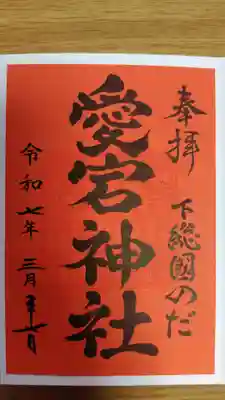 奉拝 下総國のだ
愛宕神社
令和七年 三月二十七日